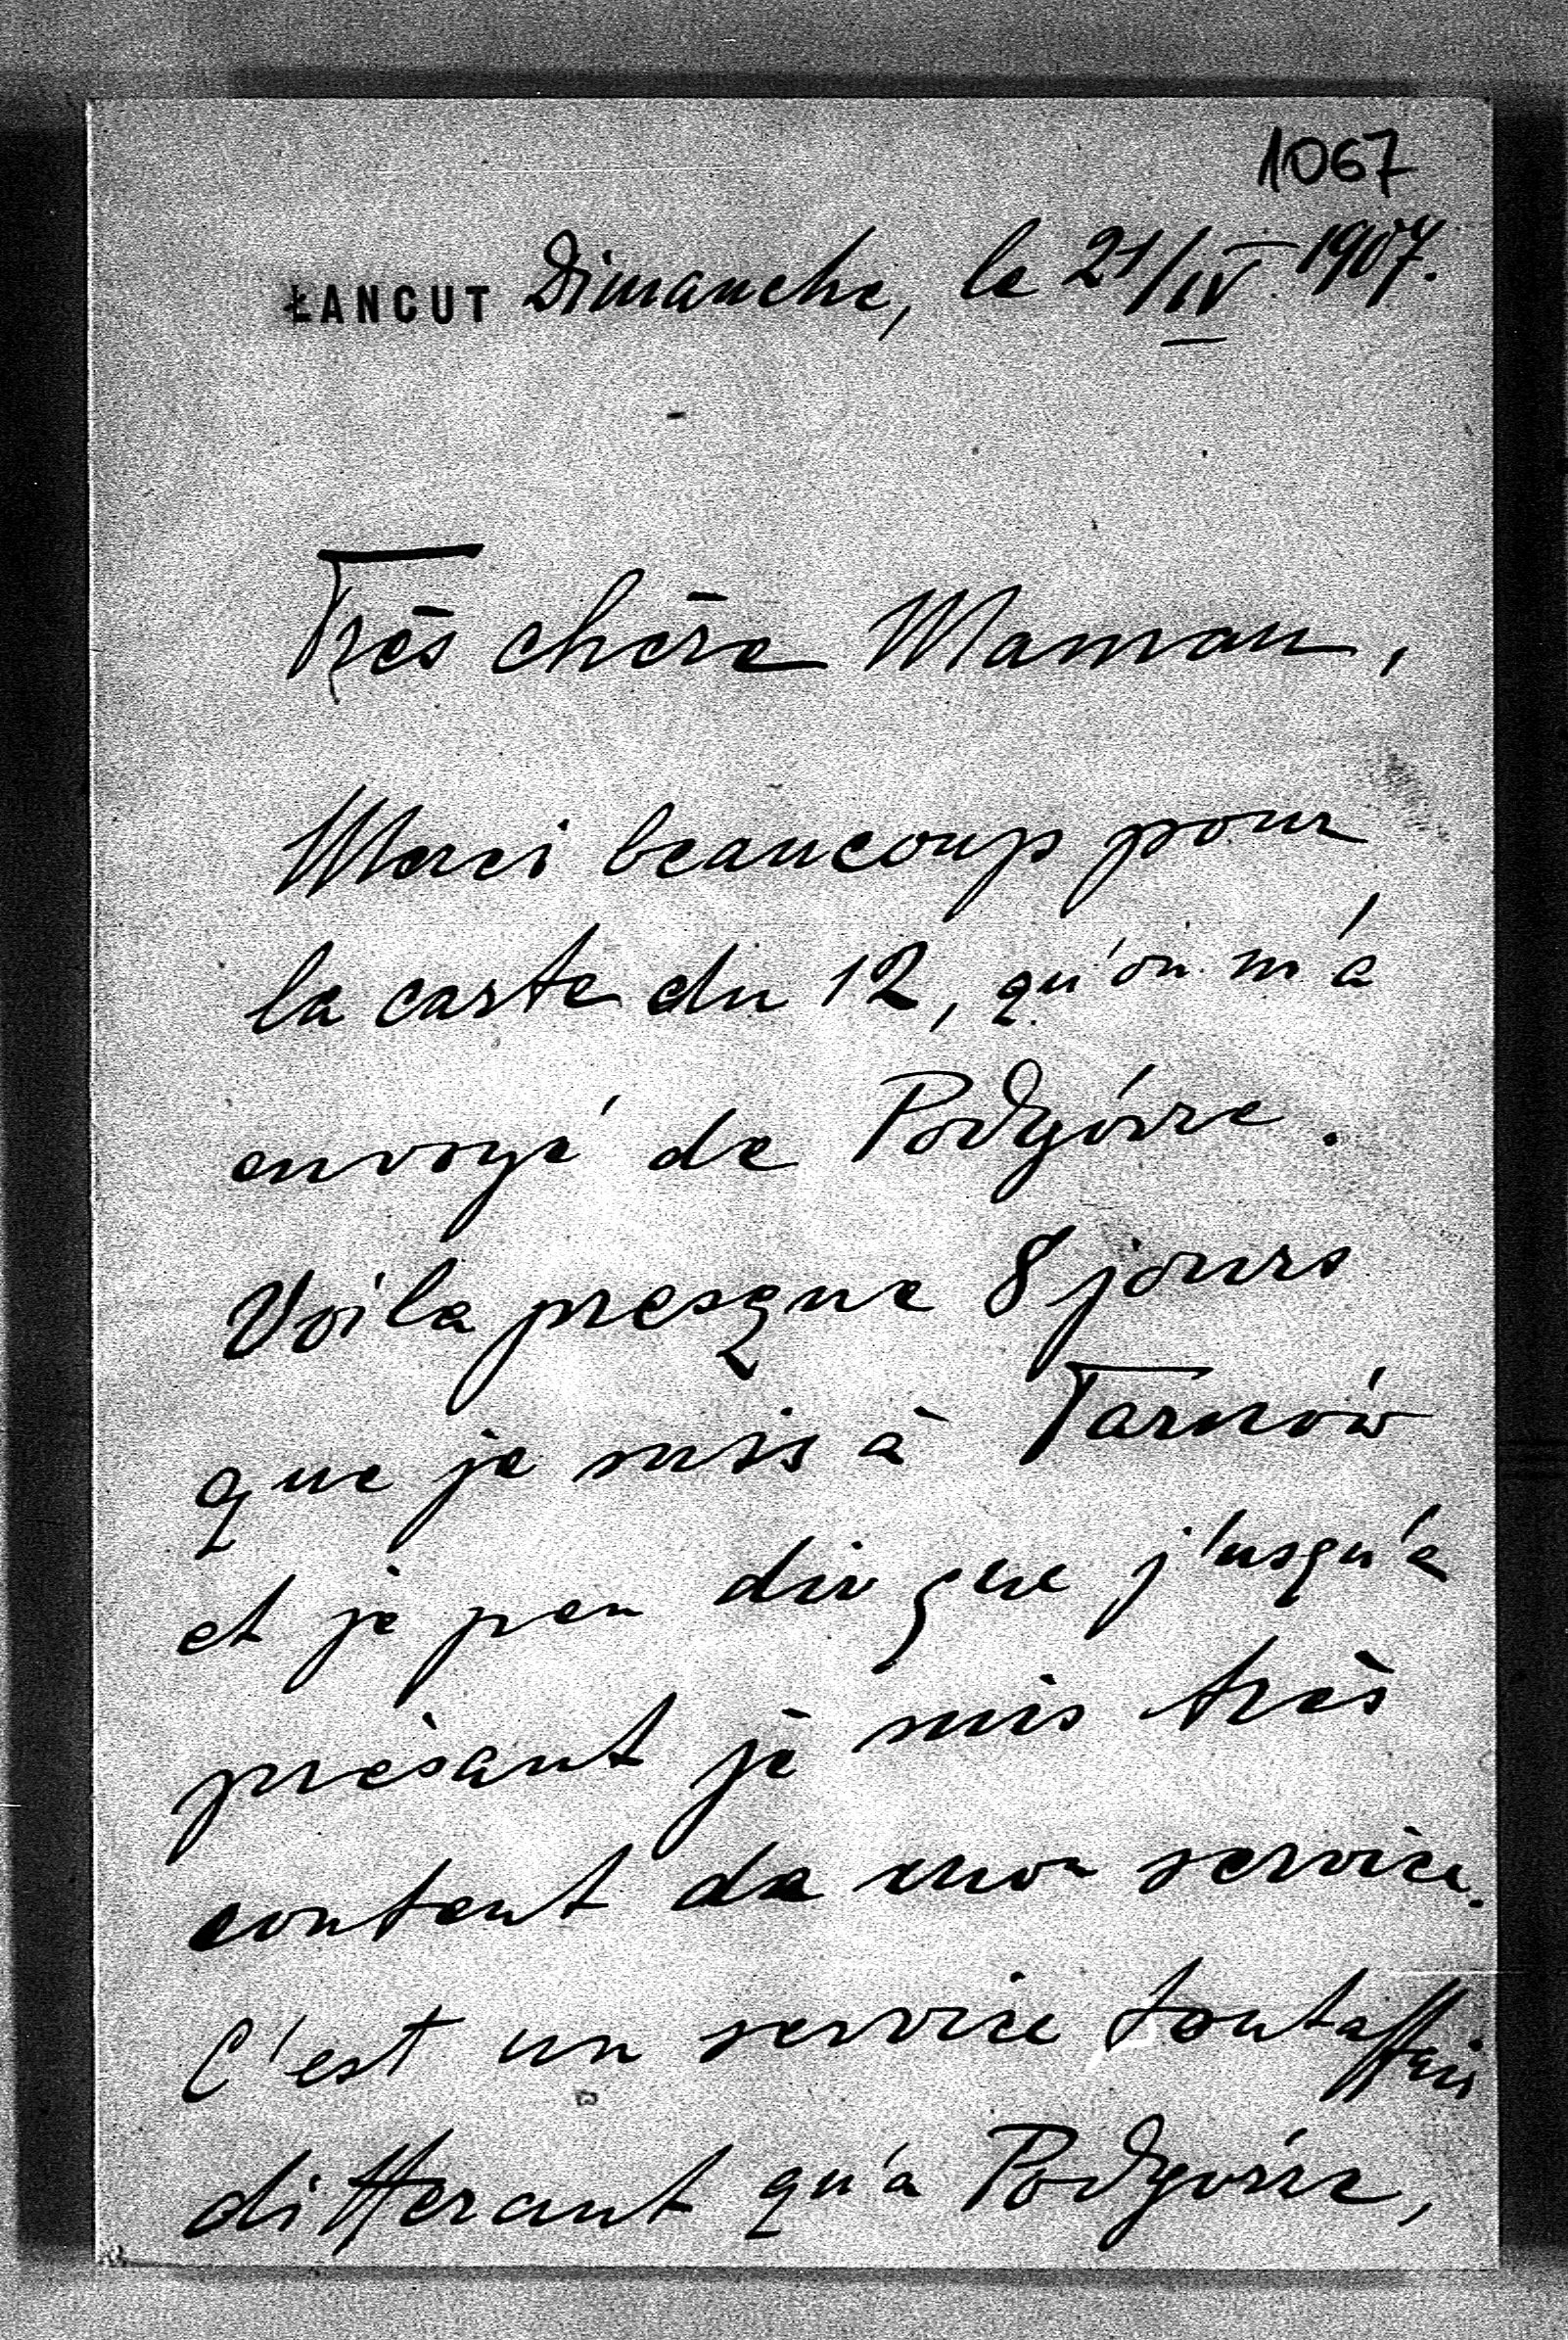 1067
ŁANCUT Dimanche, le 21/IV 1907.
Très chère Maman,
Merci beaucoup pour
la carte du 12, qu'on m'a
envoyé de Podgórze.
Voila presque 8 jours
que je suis à Tarnów
et je peu dir que j'usqu'a
présant je suis très
content de mon service.
C'est un service toutaffais
differant qu'a Podgórze,